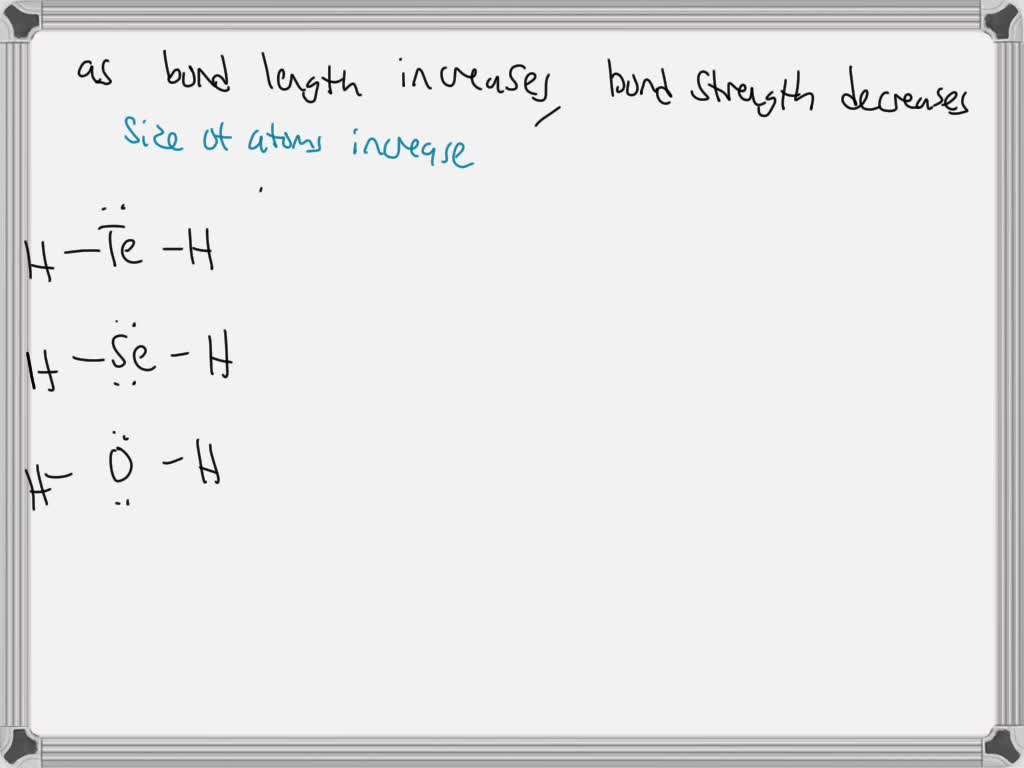 as bond length increases, bond strength decreases
size of atoms increase
H - Te - H
H - Se - H
H - O - H